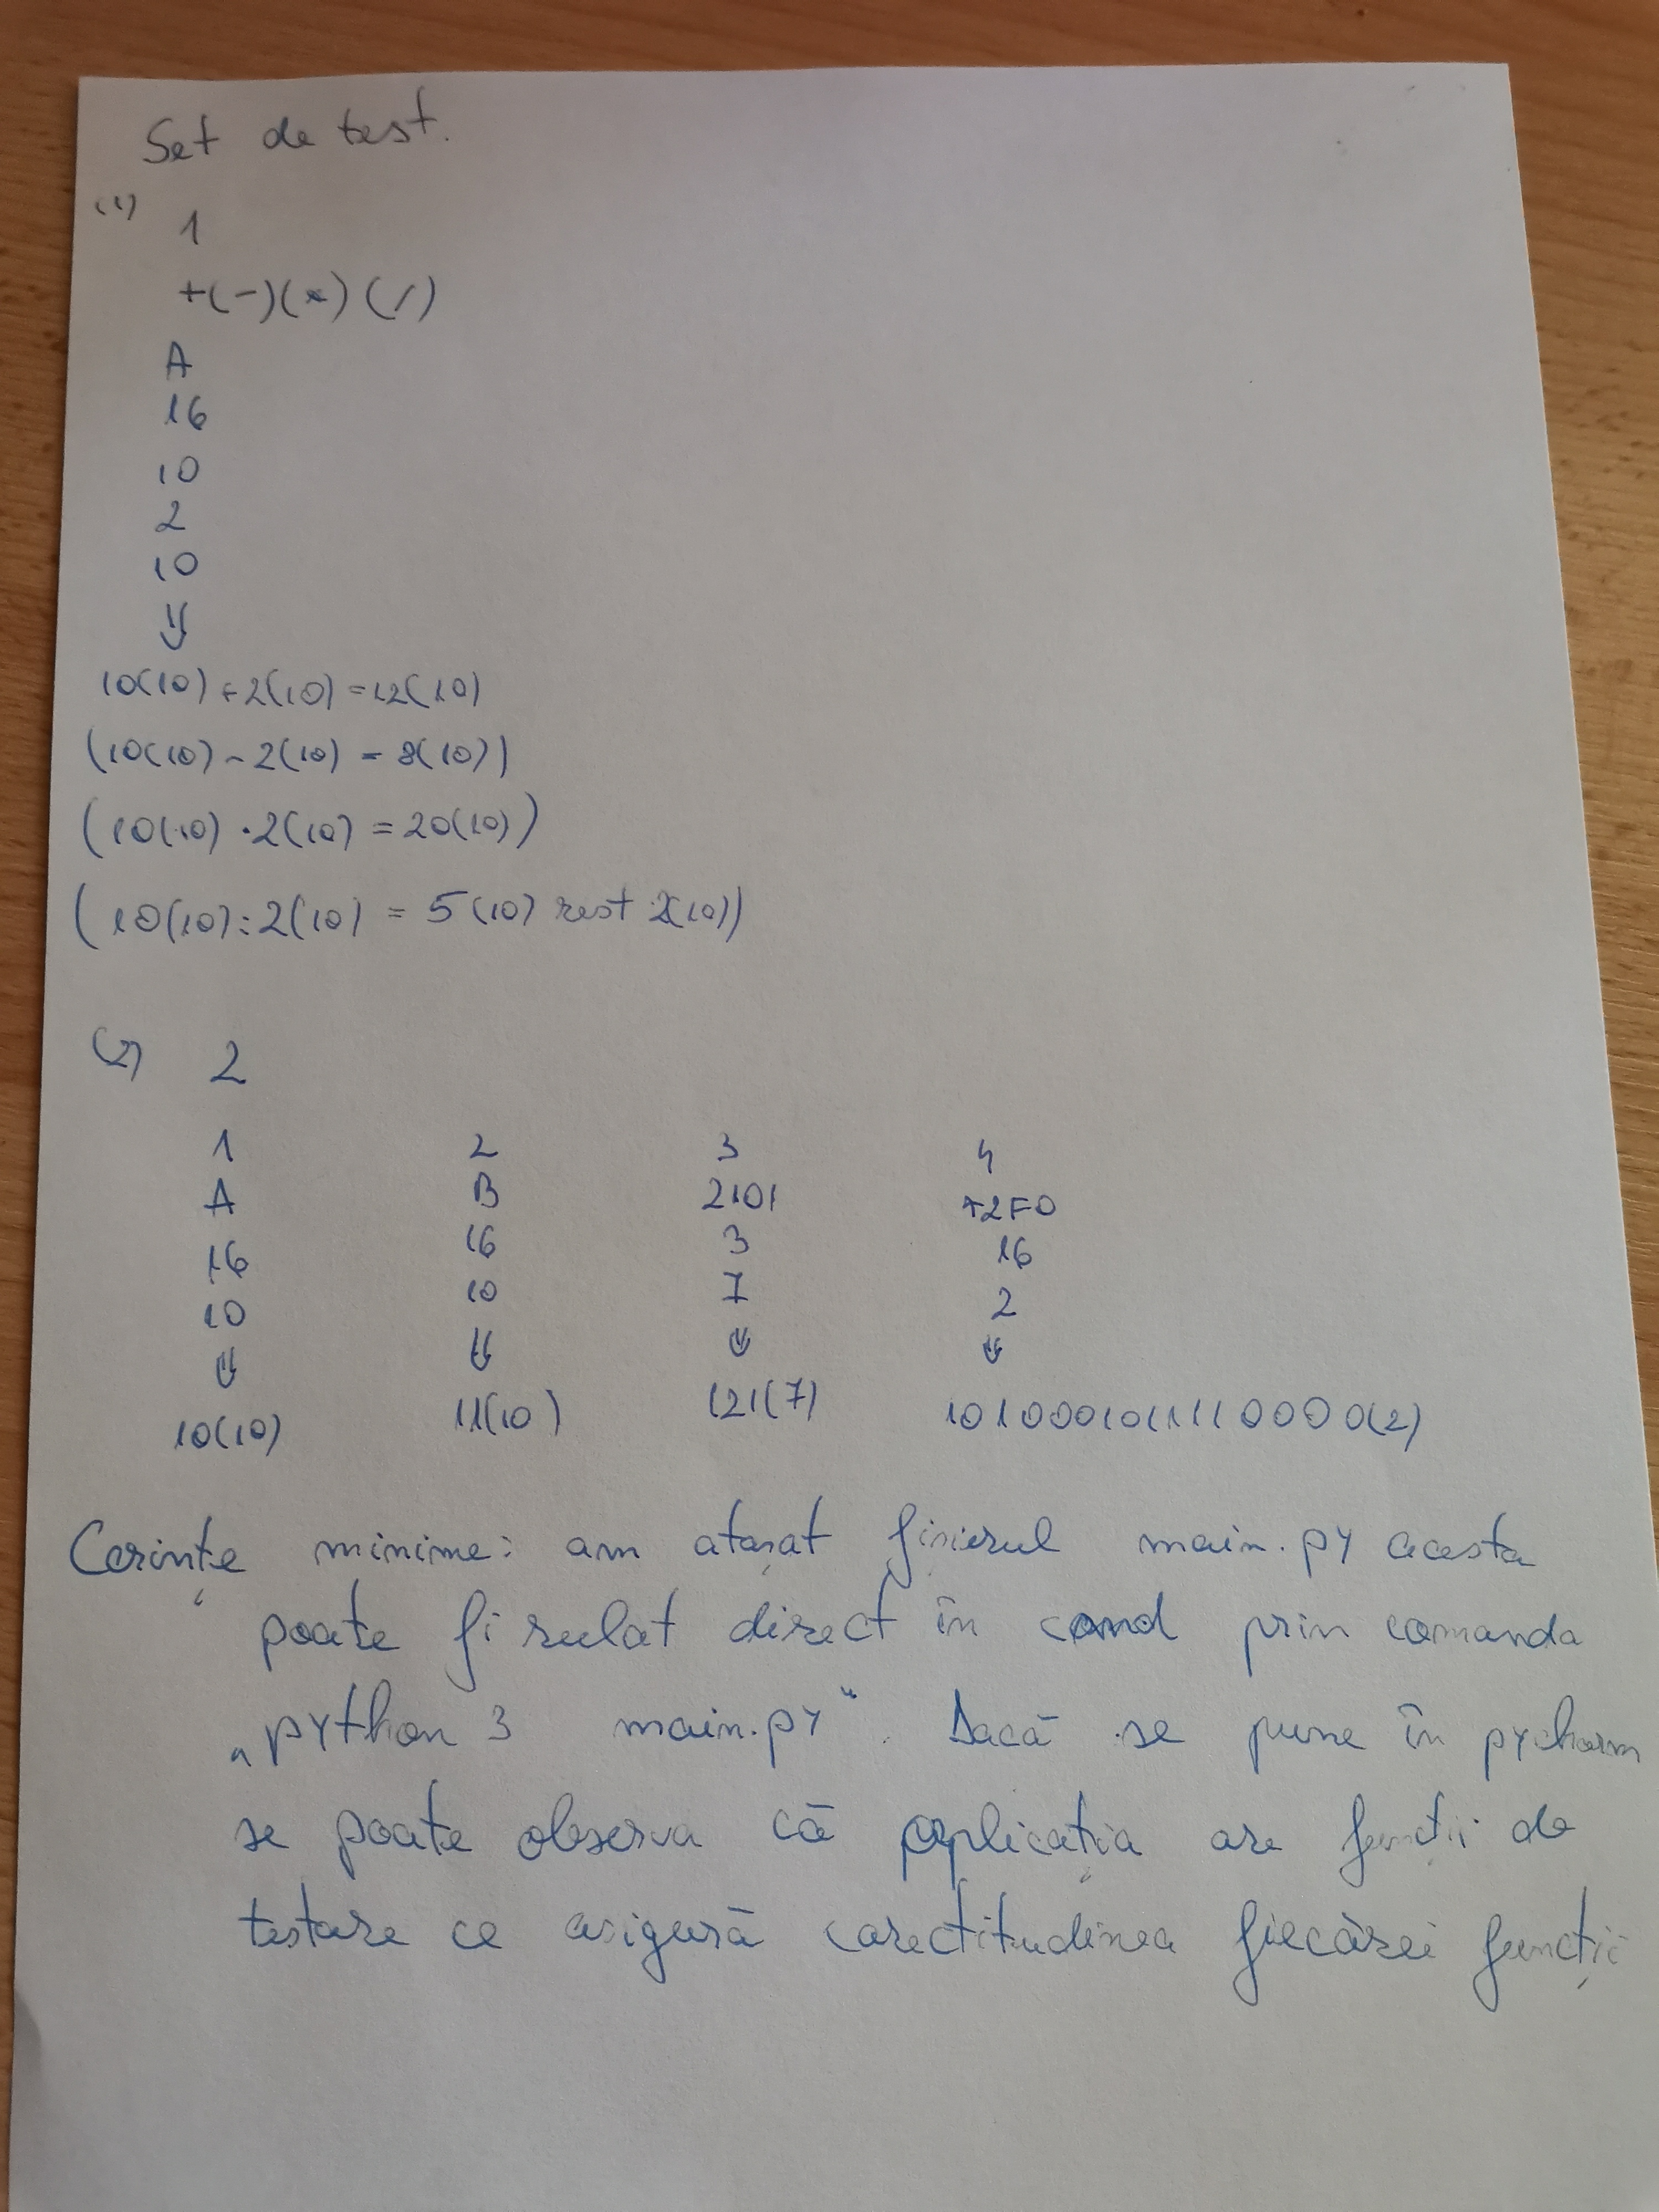 Set de test.
(1) 1
+(-)(*)(/)
A
16
10
2
10
⇓
10(10)+2(10)=12(10)
(10(10)-2(10)=8(10))
(10(10)·2(10)=20(10))
(10(10):2(10)=5(10) rest (10))
(2) 2
1 2 3 4
A B 2101 A2F0
16 16 3 16
10 10 7 2
⇓ ⇓ ⇓ ⇓
10(10) 11(10) 121(7) 1010001011110000(2)
Cerințe minime: am atașat fișierul main.py acesta
poate fi rulat direct în cmd prin comanda
„python3 main.py". Dacă se pune în pycharm
se poate observa că aplicația are funcții de
testare ce asigură corectitudinea fiecărei funcții